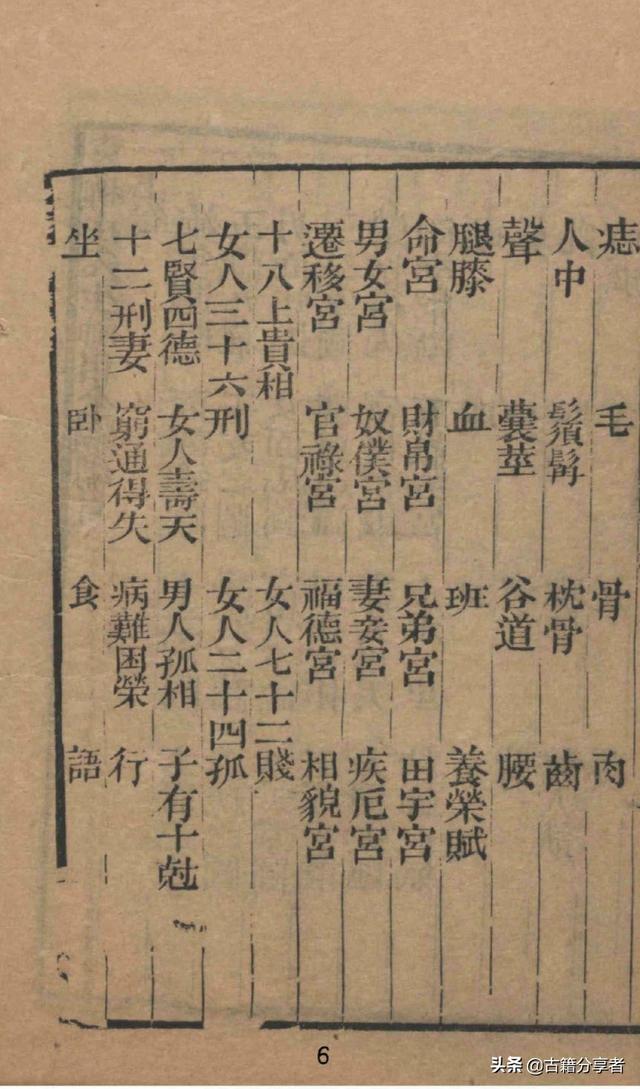 痣 毛 骨 肉
人中 鬚髯 枕骨 齒
聲 囊莖 谷道 腰
腿膝 血 班 養榮賦
命宮 財帛宮 兄弟宮 田宇宮
男女宮 奴僕宮 妻妾宮 疾厄宮
遷移宮 官祿宮 福德宮 相貌宮
十八上貴相 女人七十二賤
女人三十六刑 女人二十四孤
七賢四德 女人壽夭 男人孤相 子有十尅
十二刑妻 窮通得失 病難困榮 行
坐 卧 食 語
6
头条 @古籍分享者